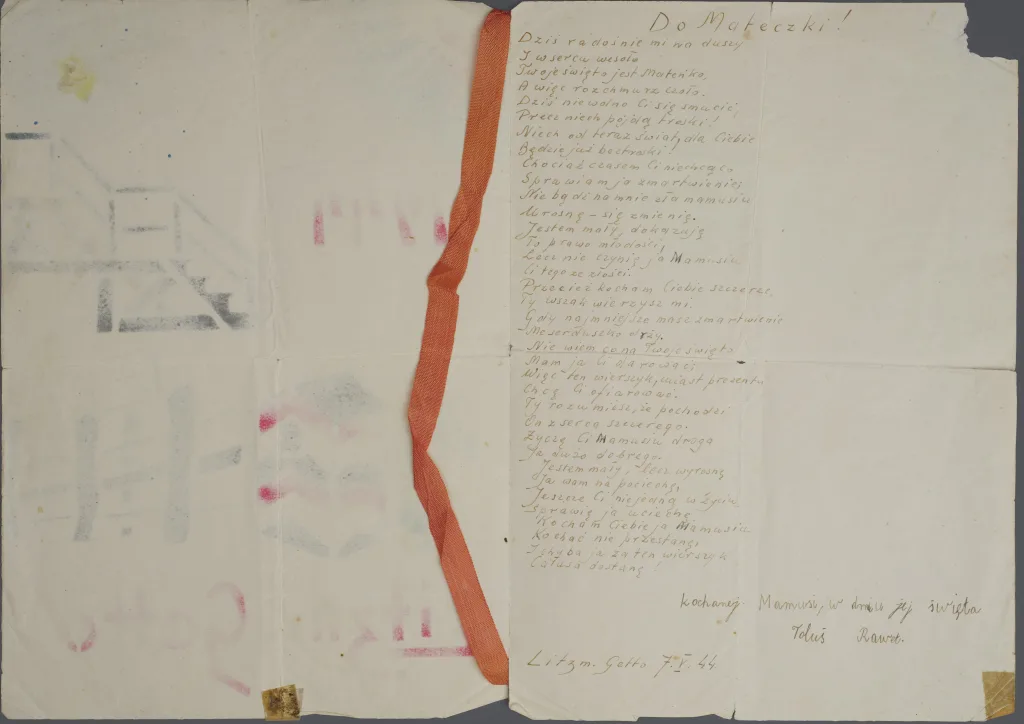 Do Mateczki!
Dziś radośnie mi na duszy
I w sercu wesoło
Twoje święto jest Mateńko,
A więc rozchmurz czoło.
Dziś nie wolno Ci się smucić,
Precz niech pójdą troski!
Niech od teraz świat, dla Ciebie
Będzie już beztroski!
Chociaż czasem Ci niechcąco
Sprawiam ja zmartwienie,
Nie bądź na mnie zła mamusiu
Urosnę – się zmienię.
Jestem mały, dokazuję
To prawo młodości!
Lecz nie czynię ja Mamusiu
Ci tego ze złości.
Przecież kocham Ciebie szczerze,
Ty wszak wierzysz mi.
Gdy najmniejsze masz zmartwienie
Me serduszko drży.
Nie wiem co na Twoje święto
Mam ja Ci darować,
Więc ten wierszyk, miast prezentu
Chcę Ci ofiarować.
Ty rozumiesz, że pochodzi
On z serca szczerego.
Życzę Ci Mamusiu droga
Ja dużo dobrego.
Jestem mały, lecz wyrosnę
Ja wam na pociechę,
Jeszcze Ci niejedną w życiu
Sprawię ja uciechę
Kocham Ciebie ja Mamusiu
Kochać nie przestanę,
I chyba ja za ten wierszyk
Całusa dostanę!
Kochanej Mamusi, w dniu jej święta
Lituś
Litzm. Getto 7.V.44.